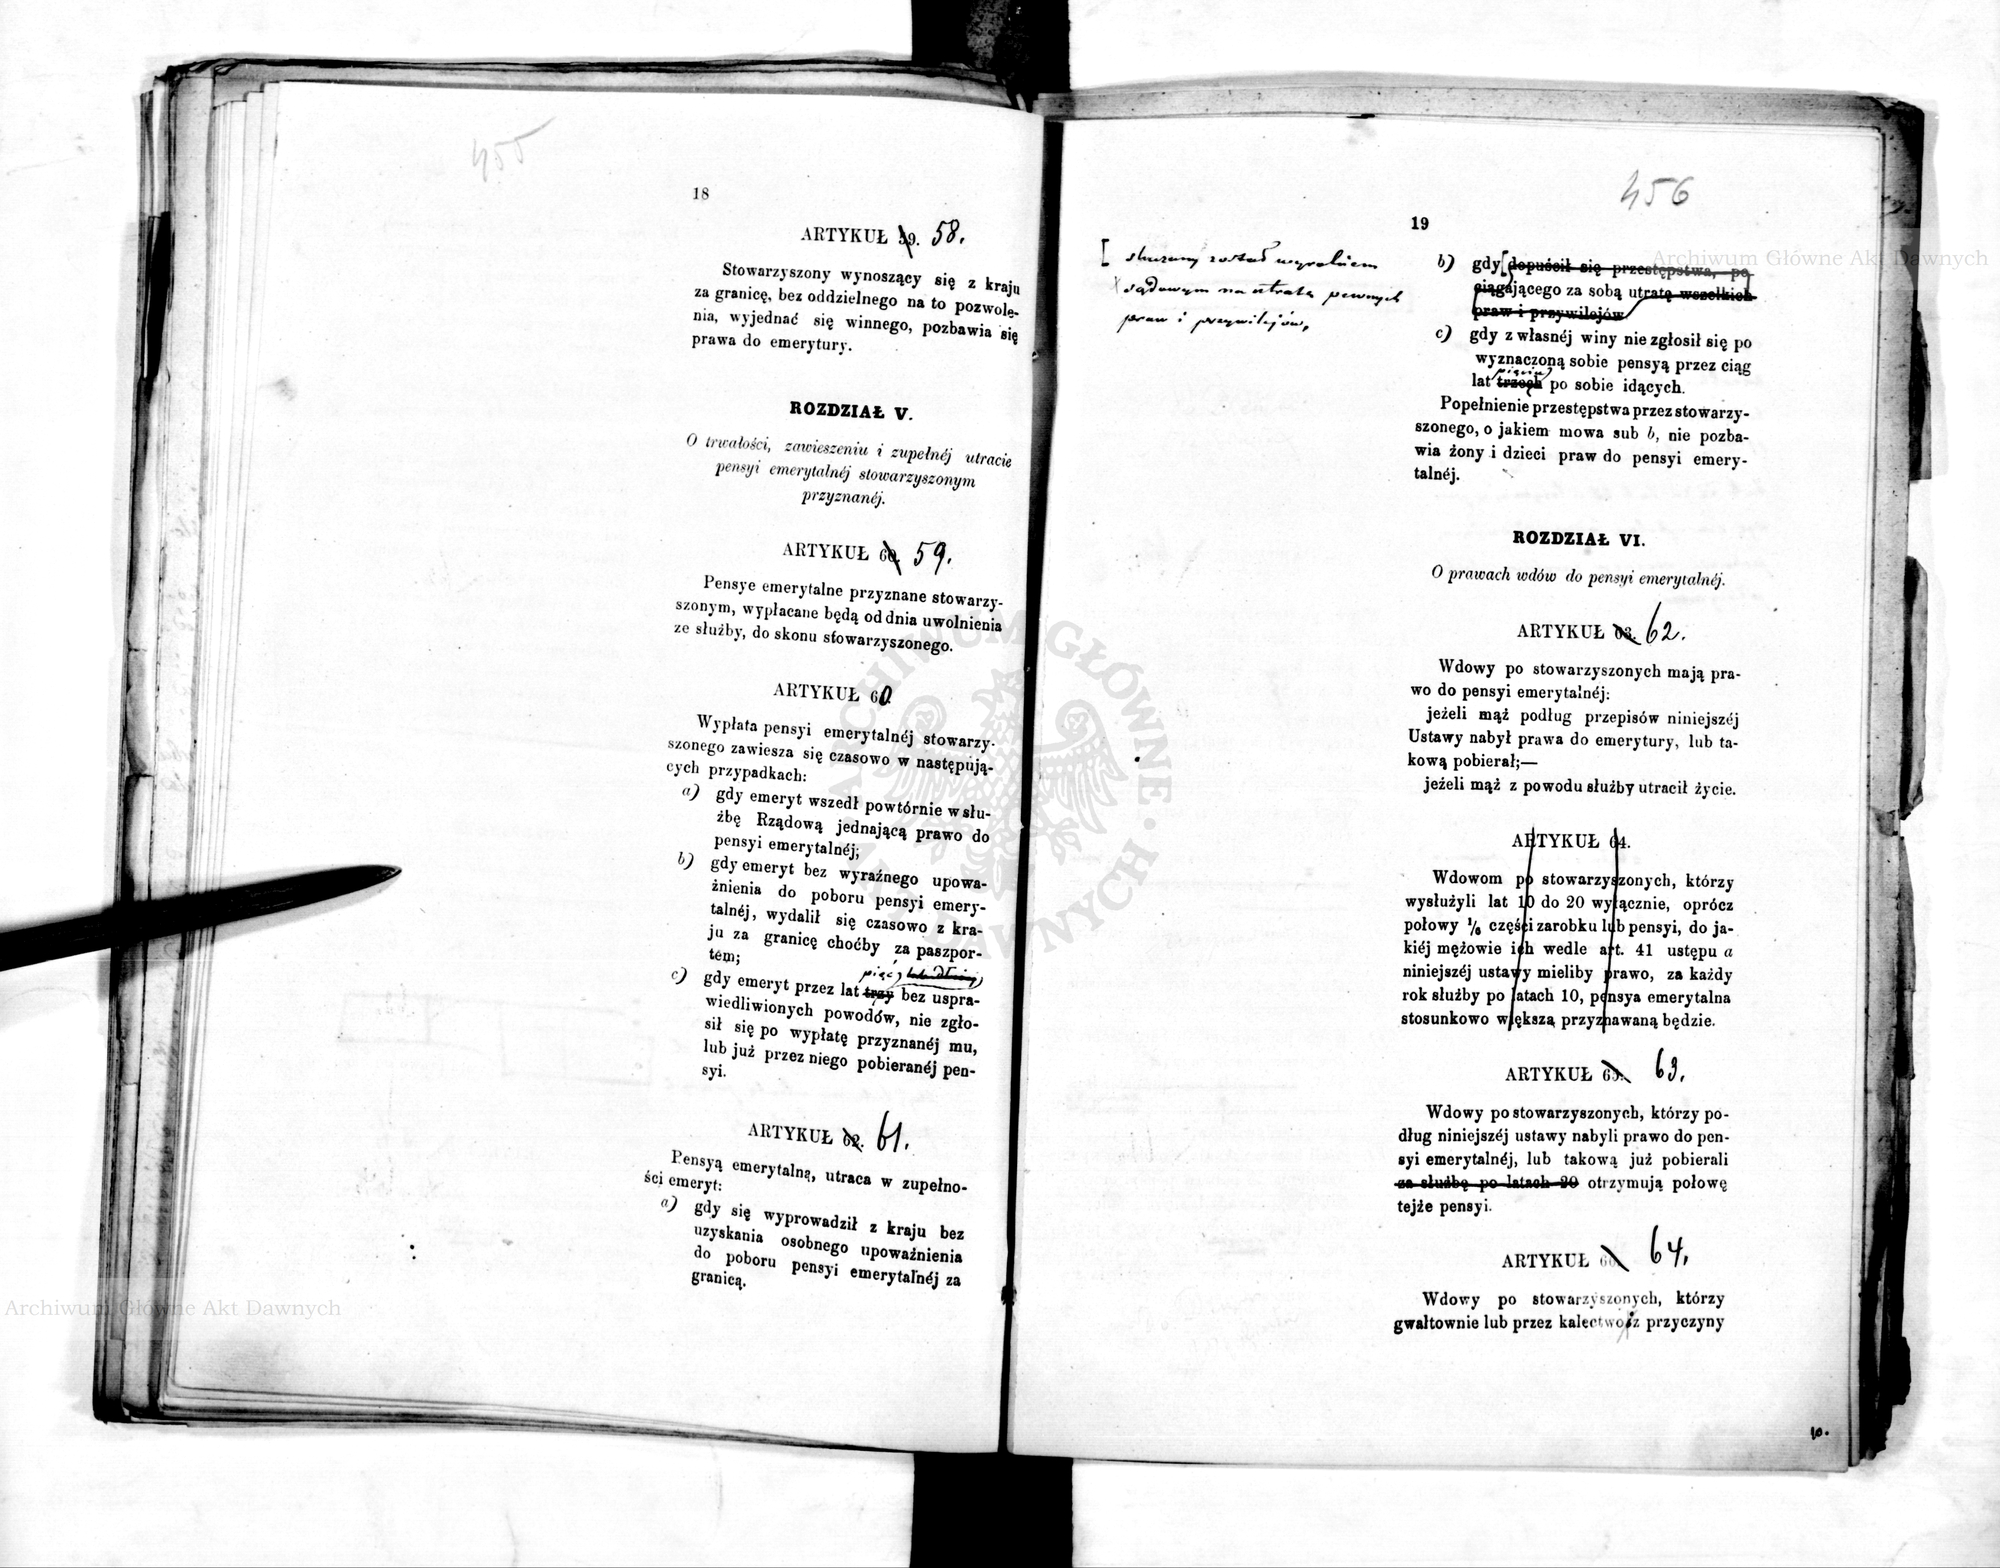 455
18
ARTYKUŁ 59. 58.
Stowarzyszony wynoszący się z kraju
za granicę, bez oddzielnego na to pozwole-
nia, wyjednać się winnego, pozbawia się
prawa do emerytury.
ROZDZIAŁ V.
O trwałości, zawieszeniu i zupełnéj utracie
pensyi emerytalnéj stowarzyszonym
przyznanéj.
ARTYKUŁ 60. 59.
Pensye emerytalne przyznane stowarzy-
szonym, wypłacane będą od dnia uwolnienia
ze służby, do skonu stowarzyszonego.
ARTYKUŁ 60.
Wypłata pensyi emerytalnéj stowarzy-
szonego zawiesza się czasowo w następują-
cych przypadkach:
a) gdy emeryt wszedł powtórnie w słu-
żbę Rządową jednającą prawo do
pensyi emerytalnéj;
b) gdy emeryt bez wyraźnego upowa-
żnienia do poboru pensyi emery-
talnéj, wydalił się czasowo z kra-
ju za granicę choćby za paszpor-
tem;
pięć
c) gdy emeryt przez lat trzy bez uspra-
wiedliwionych powodów, nie zgło-
sił się po wypłatę przyznanéj mu,
lub już przez niego pobieranéj pen-
syi.
ARTYKUŁ 62. 61.
Pensyą emerytalną, utraca w zupełno-
ści emeryt:
a) gdy się wyprowadził z kraju bez
uzyskania osobnego upoważnienia
do poboru pensyi emerytalnéj za
granicą.
456
19
[ skazany został wyrokiem
sądowym na utratę pewnych
praw i przywilejów,
b) gdy [dopuścił się przestępstwa, po
ciągającego za sobą utratę wszelkich
praw i przywilejów
c) gdy z własnéj winy nie zgłosił się po
wyznaczoną sobie pensyą przez ciąg
pięciu
lat trzech po sobie idących.
Popełnienie przestępstwa przez stowarzy-
szonego, o jakiem mowa sub b, nie pozba-
wia żony i dzieci praw do pensyi emery-
talnéj.
ROZDZIAŁ VI.
O prawach wdów do pensyi emerytalnéj.
ARTYKUŁ 63. 62.
Wdowy po stowarzyszonych mają pra-
wo do pensyi emerytalnéj:
jeżeli mąż podług przepisów niniejszéj
Ustawy nabył prawa do emerytury, lub ta-
kową pobierał;—
jeżeli mąż z powodu służby utracił życie.
ARTYKUŁ 64.
Wdowom po stowarzyszonych, którzy
wysłużyli lat 10 do 20 wyłącznie, oprócz
połowy 1/6 części zarobku lub pensyi, do ja-
kiéj mężowie ich wedle art. 41 ustępu a
niniejszéj ustawy mieliby prawo, za każdy
rok służby po latach 10, pensya emerytalna
stosunkowo większą przyznawaną będzie.
ARTYKUŁ 65. 63.
Wdowy po stowarzyszonych, którzy po-
dług niniejszéj ustawy nabyli prawo do pen-
syi emerytalnéj, lub takową już pobierali
za służbę po latach 20 otrzymują połowę
tejże pensyi.
ARTYKUŁ 66. 64.
Wdowy po stowarzyszonych, którzy
gwałtownie lub przez kalectwo z przyczyny
10.
Archiwum Główne Akt Dawnych
Archiwum Główne Akt Dawnych
ARCHIWUM GŁÓWNE AKT DAWNYCH